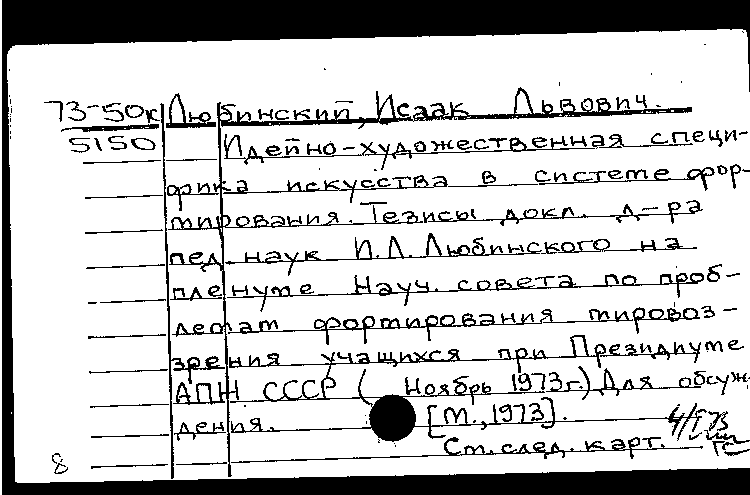 73-50к Любинский, Исаак Львович.
5150 Идейно-художественная специ-
фика искусства в системе фор-
мирования. Тезисы докл. д-ра
пед. наук И.Л. Любинского на
пленуме Науч. совета по проб-
лемам формирования мировоз-
зрения учащихся при Президиуме
АПН СССР ( Ноябрь 1973г.) Для обсуж-
дения. [М., 1973].
См. след. карт.
8